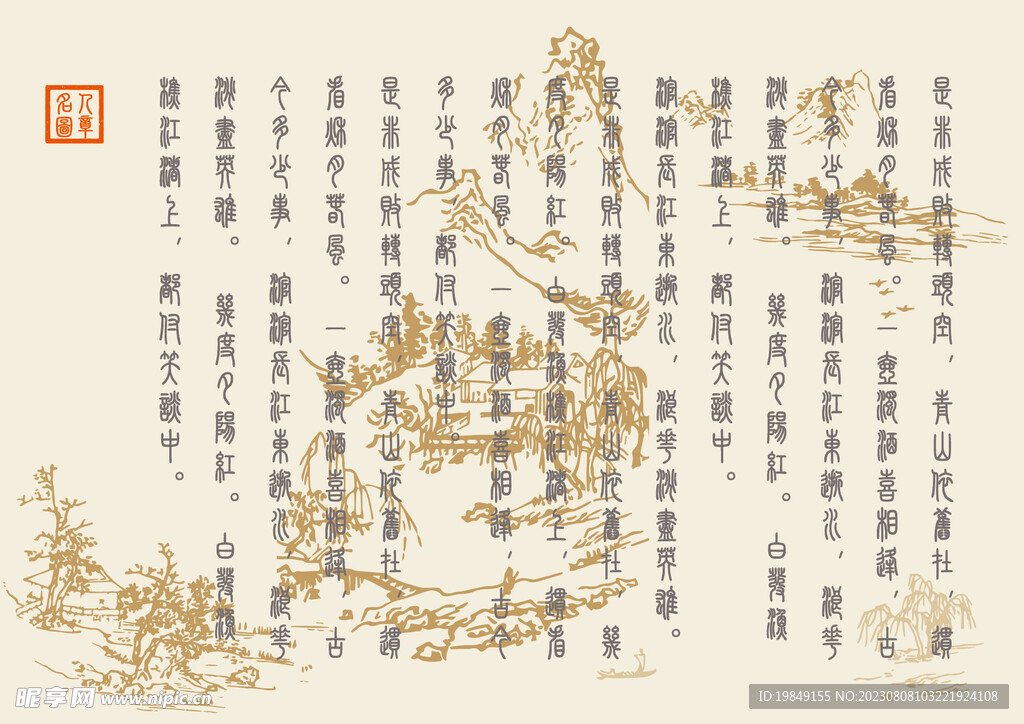 是非成敗轉頭空，青山依舊在，還
看秋月春風。一壺濁酒喜相逢，古
今多少事，滾滾長江東逝水，浪花
淘盡英雄。 幾度夕陽紅。白髮漁
樵江渚上，都付笑談中。
滾滾長江東逝水，浪花淘盡英雄。
是非成敗轉頭空，青山依舊在，幾
度夕陽紅。白髮漁樵江渚上，還看
秋月春風。一壺濁酒喜相逢，古今
多少事，都付笑談中。
是非成敗轉頭空，青山依舊在，還
看秋月春風。一壺濁酒喜相逢，古
今多少事，滾滾長江東逝水，浪花
淘盡英雄。 幾度夕陽紅。白髮漁
樵江渚上，都付笑談中。
人章
名圖
昵享网 www.nipic.cn
ID:19849155 NO:20230808103221924108